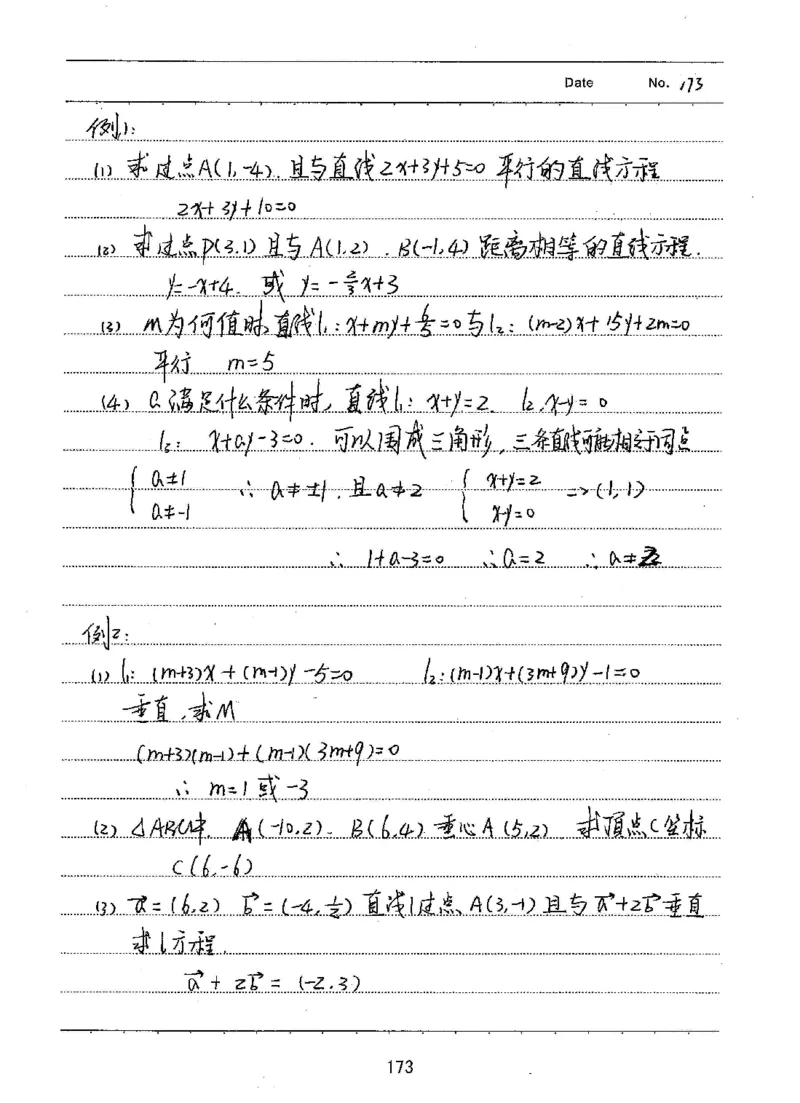 Date No. 173
例1:
(1) 求过点A(1,-4).且与直线2x+3y+5=0 平行的直线方程
2x+3y+10=0
(2) 求过点P(3.1)且与A(1.2).B(-1,4)距离相等的直线方程.
y=-x+4. 或 y=-2/3x+3
(3) m为何值时,直线l₁:x+my+6/5=0与l₂:(m-2)x+15y+2m=0
平行 m=5
(4) a满足什么条件时,直线l₁:x+y=2. l₂.x-y=0
l₂: x+ay-3=0. 可以围成三角形,三条直线可能相交于同点
{ a≠1 ∴ a≠±1.且a≠2 { x+y=2 => (1,1)
a≠-1 x-y=0
∴ 1+a-3=0 ∴a=2 ∴a≠2
例2:
(1) l₁: (m+3)x+(m-1)y-5=0 l₂:(m-1)x+(3m+9)y-1=0
垂直,求M
(m+3)(m-1)+(m-1)(3m+9)=0
∴ m=1或-3
(2) △ABC中. A(-10.2). B(6.4) 垂心A(5,2) 求顶点C坐标
C(6.-6)
(3) a⃗=(6,2) b⃗=(-4,1/2) 直线l过点A(3,-1)且与a⃗+2b⃗垂直
求l方程.
a⃗+2b⃗=(-2.3)
173